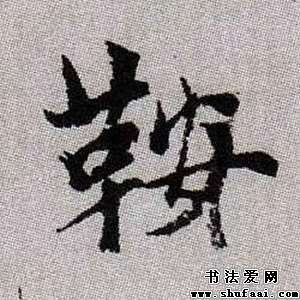 鞍
书法爱网
www.shufaai.com